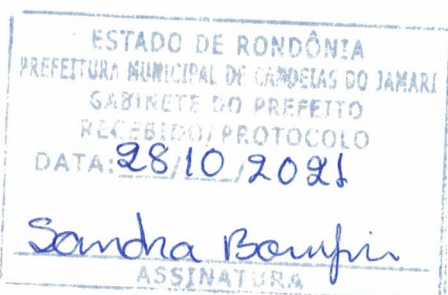 ESTADO DE RONDÔNIA
PREFEITURA MUNICIPAL DE CANDEIAS DO JAMARI
GABINETE DO PREFEITO
RECEBIDO/PROTOCOLO
DATA: 28/10/2021
Sandra Bomfim
ASSINATURA